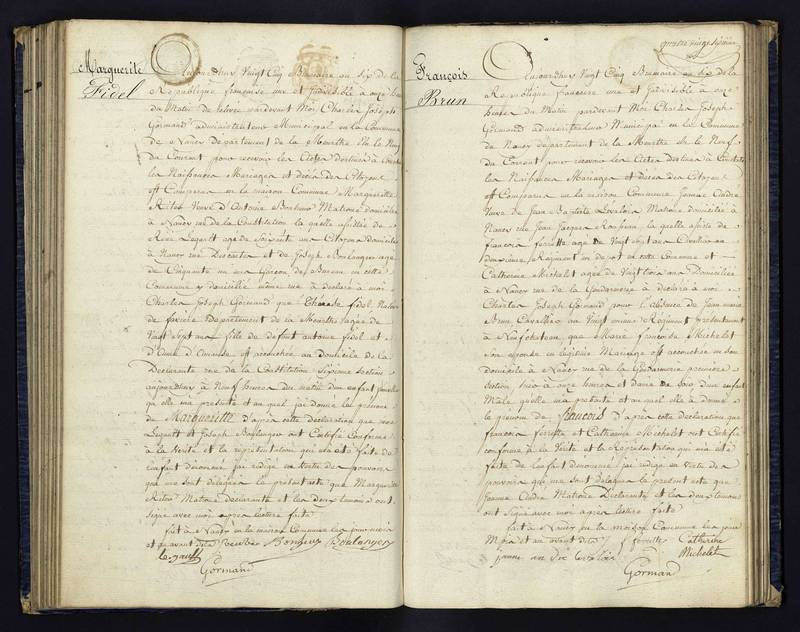 Marguerite
Fidel
Aujourdhuy Vingt Cinq Brumaire an six de la
Republique française une et Indivisible à onze heures
du Matin pardevant Moi Charles Joseph
Gormand administrateur Municipal en la Commune
de Nancy departement de la Meurthe élu le Neuf
du Courant pour recevoir les Actes destinés à Constater
les Naissances Mariages et décès des Citoyens
est Comparue en la maison Commune Marguerite
Ritos Veuve d'Antoine Bonheur Matrone domiciliée
à Nancy rue de la Constitution la quelle assistée de
René Legault agé de Soixante un Citoyen domicilié
à Nancy rue Descartes et de Joseph Boulanger agé
de Cinquante un ans Garçon de Bureau en cette
Commune y domicilié même rue à déclaré à moi
Charles Joseph Gormand que Therese fidel Native
de favière Departement de la Meurthe agée de
Vingt Sept ans fille de défunt antoine fidel et
d'Anne est accouchée au domicile de la
Declarante rue de la Constitution Sixieme Section
aujourdhuy à Neuf heures du matin d'un Enfant femelle
qu'elle m'a presenté et au quel j'ai donné le prénom
de Marguerite d'après cette déclaration que René
Legault et Joseph Boulanger ont Certifié Conforme
à la Verité et la représentation qui m'a été faite de
l'enfant dénommé j'ai rédigé en Vertu des pouvoirs
qui me sont délégués le présent acte que Marguerite
Ritos Matrone déclarante et les deux temoins ont
signé avec moi après lecture faite
fait à Nancy en la maison Commune les jour mois
et an avant dits Veuve Bonheur Boulanger
Legault
Gormand
quatre vingt sixieme
François
Brun
Aujourdhuy Vingt Cinq Brumaire an six de la
Republique francoise une et Indivisible à onze
heures du Matin pardevant Moi Charles Joseph
Gormand administrateur Municipal en la Commune
de Nancy departement de la Meurthe élu le Neuf
du Courant pour recevoir les Actes destinés à Constater
les Naissances Mariages et décès des Citoyens
est Comparue en la maison Commune Jeanne Oudre
Veuve de Jean Baptiste Matrone domiciliée à
Nancy rue Jean Jacques Rousseau, la quelle assistée de
francois ferrette agé de Vingt Sept ans Cavalier au
deuxième Régiment en dépôt en cette Commune et
Catherine Michelet agée de Vingt trois ans Domiciliée
à Nancy rue de la Gendarmerie à déclaré à moi
Charles Joseph Gormand pour l'absence de Jean marie
Brun Cavalier au Vingt unieme Régiment présentement
à Neufchateau, que Marie françoise Michelet
son épouse en légitime Mariage est accouchée en son
domicile à Nancy rue de la Gendarmerie premiere
Section hier à onze heures et demie du Soir d'un enfant
Mâle qu'elle m'a presenté et au quel elle à donné
le prenom de francois d'après cette déclaration que
francois ferrette et Catherine Michelet ont Certifié
conforme à la Verité et la Représentation qui m'a été
faite de l'enfant dénommé j'ai rédigé en Vertu des
pouvoirs qui me sont délégués le présent acte que
Jeanne Oudre Matrone Declarante et les deux temoins
ont Signé avec moi après lecture faite
fait à Nancy en la maison Commune les jour
Mois et an avant dits f ferrette Catherine
Michelet
Gormand